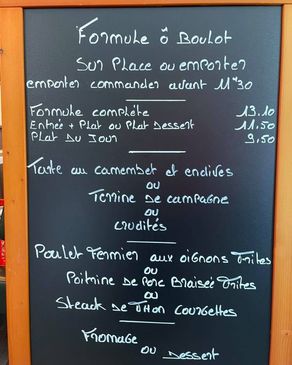 Formule ô Boulot
Sur Place ou emporter
emporter commander avant 11H30
Formule complète 13.10
Entrée + Plat ou Plat Dessert 11,50
Plat du Jour 9,50
Tarte au camembert et endives
ou
Terrine de campagne
ou
crudités
Poulet Fermier aux oignons Frites
ou
Poitrine de Porc Braisée Frites
ou
Steack de Thon Courgettes
Fromage
ou Dessert